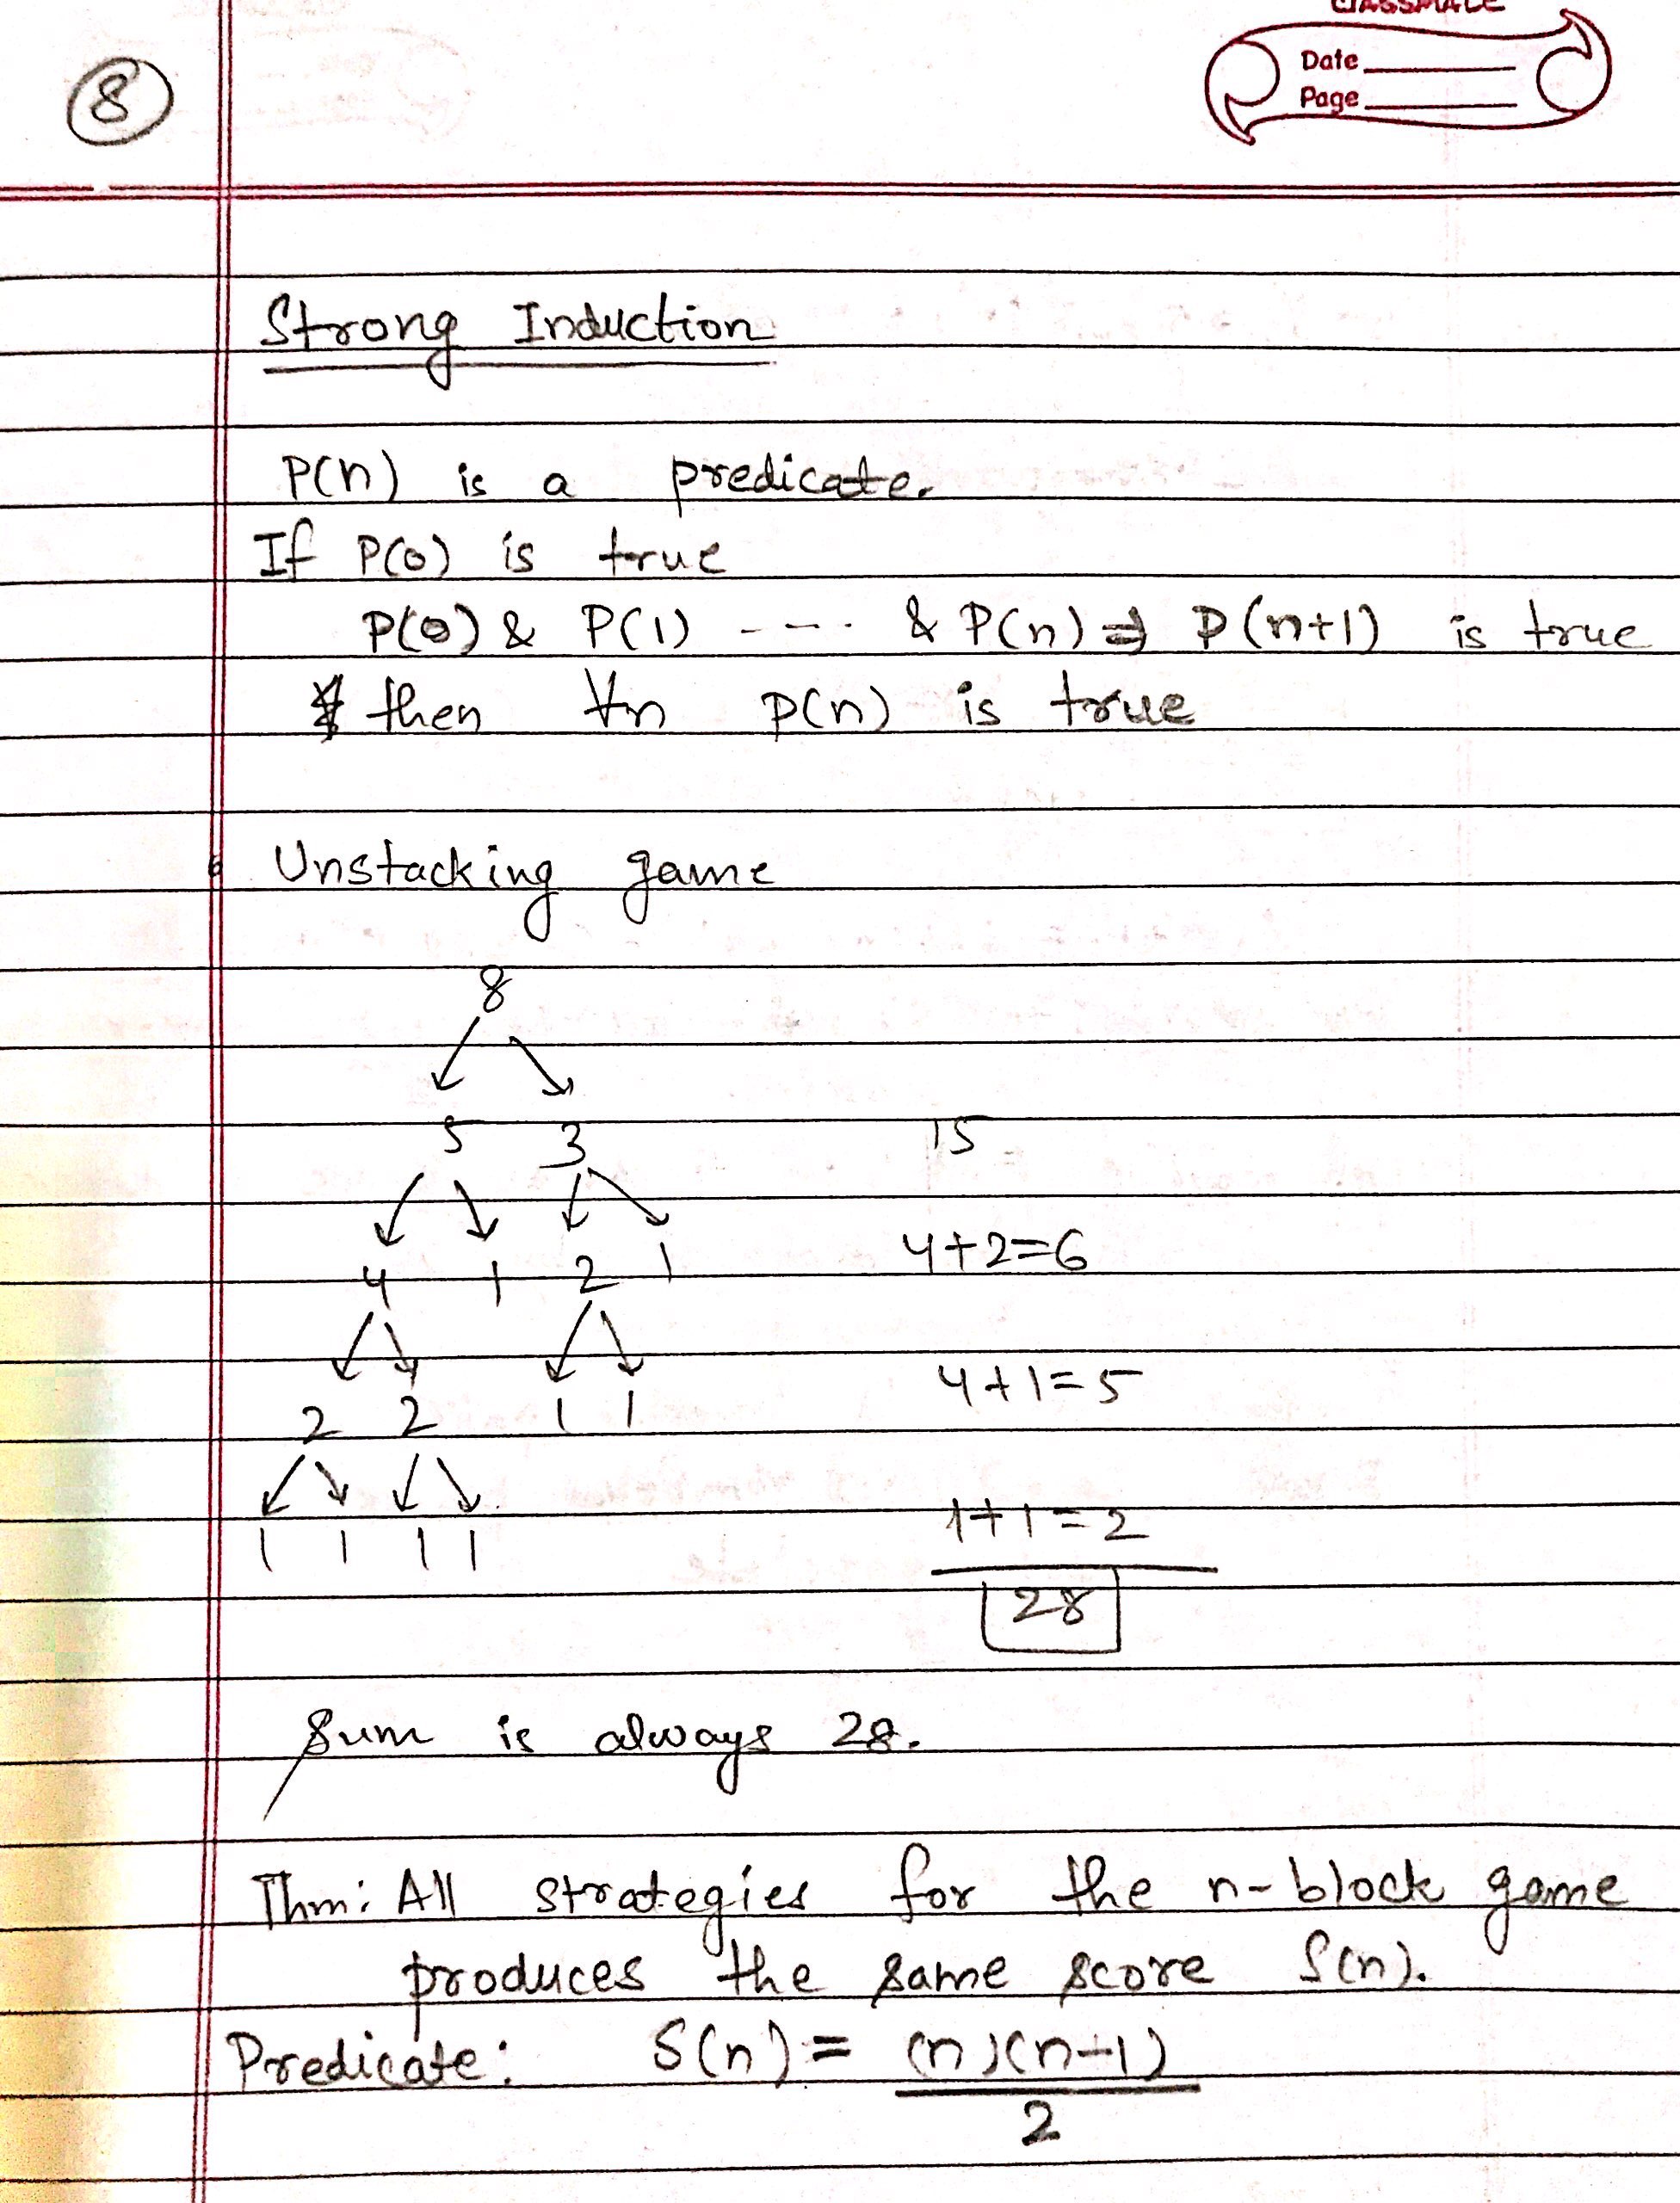 CLASSMATE
Date
Page
8
Strong Induction
P(n) is a predicate.
If P(0) is true
P(0) & P(1) ---- & P(n) ⇒ P(n+1) is true
then ∀n P(n) is true
Unstacking game
8
5 3 15
4 1 2 1 4+2=6
2 2 1 1 4+1=5
1 1 1 1 1+1=2
28
Sum is always 28.
Thm: All strategies for the n-block game
produces the same score S(n).
Predicate: S(n) = (n)(n-1)
2